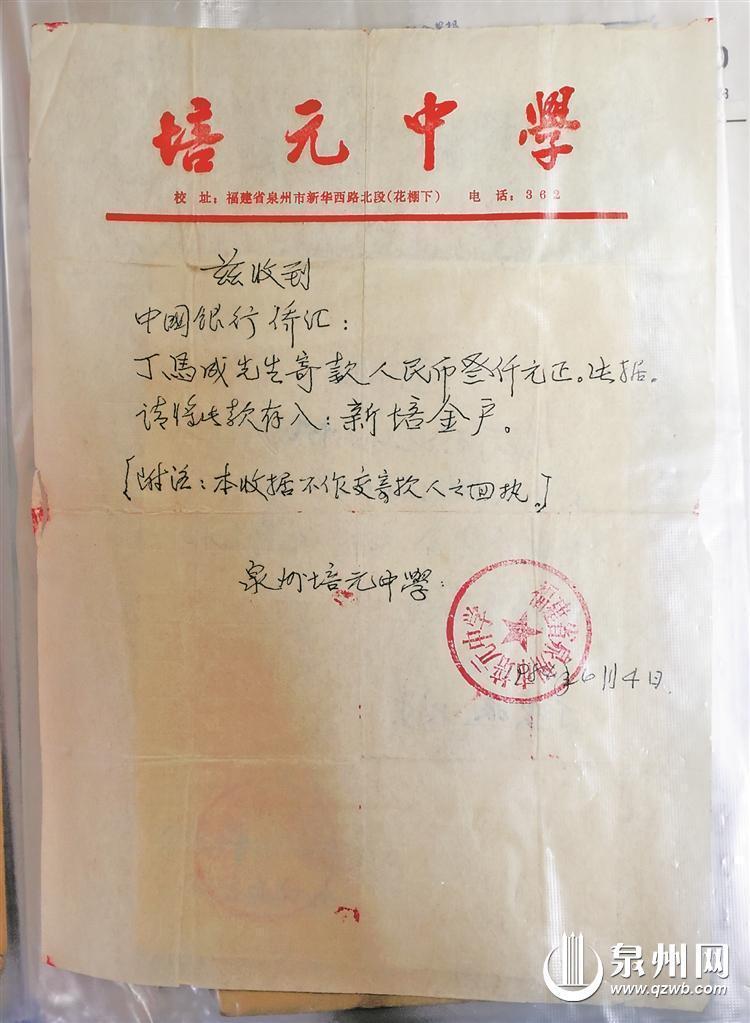 培元中學
校 址：福建省泉州市新华西路北段(花棚下) 电 话：3 6 2
兹收到
中国银行侨汇：
丁馬成先生寄款人民币叄仟元正。此据。
请将此款存入：新培金户。
[附注：本收据不作交寄款人之回执。]
泉州培元中學：
福建省泉州市培元中学
年6月4日
泉州网
www.qzwb.com